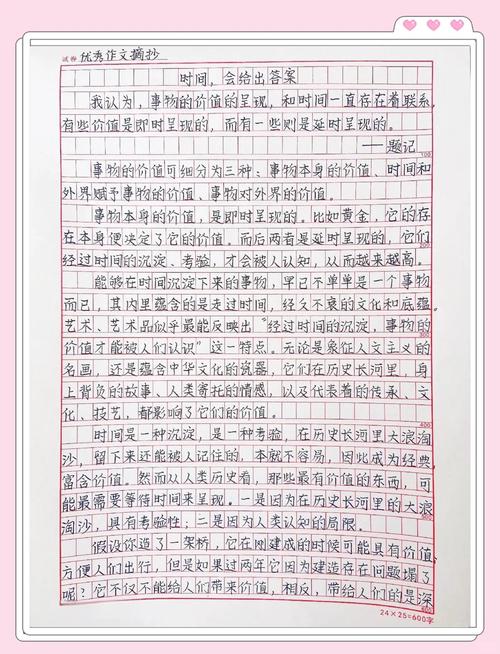 试卷 优秀作文摘抄
时间，会给出答案
我认为，事物的价值的呈现，和时间一直存在着联系，
有些价值是即时呈现的，而有一些则是延时呈现的。
——题记
100
事物的价值可细分为三种：事物本身的价值、时间和
外界赋予事物的价值、事物对外界的价值。
事物本身的价值，是即时呈现的。比如黄金，它的存
在本身便决定了它的价值。而后两者是延时呈现的，它们
200
经过时间的沉淀、考验，才会被人认知，从而越来越高。
能够在时间沉淀下来的事物，早已不单单是一个事物
而已，其内里蕴含的是走过时间，经久不衰的文化和底蕴。
艺术、艺术品似乎最能反映出“经过时间的沉淀，事物的
300
价值才能被人们认识”这一特点。无论是象征人文主义的
名画，还是蕴含中华文化的瓷器，它们在历史长河里，身
上背负的故事、人类寄托的情感，以及代表着的传承、文
化、技艺，都影响了它们的价值。
400
时间是一种沉淀，是一种考验，在历史长河里大浪淘
沙，留下来还能被人记住的，本就不容易，因此成为经典，
富含价值。然而从人类历史看，那些最有价值的东西，可
能最需要等待时间来呈现。一是因为在历史长河里的大浪
500
淘沙，具有考验性；二是因为人类认知的局限。
假设你造了一架桥，它在刚建成的时候可能具有价值，
方便人们出行，但是如果过两年它因为建造存在问题塌了
呢？它不仅不能给人们带来价值，相反，带给人们的是深
600
24×25=600字